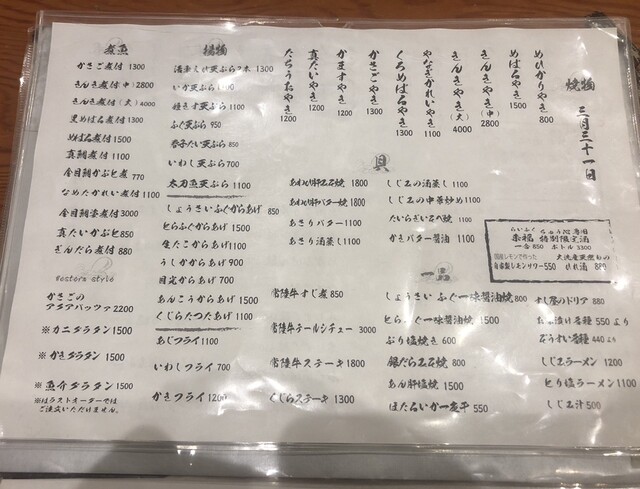 焼物
三月三十一日
めひかりやき 800
めばるやき 1500
きんきやき(中) 2800
きんきやき(大) 4000
やなぎかれいやき 1100
くろめばるやき 1300
かさごやき 1300
かますやき 1200
真だいやき 1200
たちうおやき 1200
揚物
活車えび天ぷら2本 1300
いか天ぷら 1100
ふぐ天ぷら 950
いわし天ぷら 700
太刀魚天ぷら 1100
しょうさいふぐからあげ 850
とらふぐからあげ 1500
生たこからあげ 1100
うしかからあげ 900
目光からあげ 700
あんこうからあげ 1500
くじらたつたあげ 1100
あじフライ 1100
いわしフライ 700
かきフライ 1200
煮魚
かさご煮付 1300
きんき煮付(中) 2800
きんき煮付(大) 4000
黒めばる煮付 1100
めばる煮付 1500
真鯛煮付 1100
金目鯛かぶと煮 770
なめたかれい煮付 1100
金目鯛姿煮付 3000
真だいかぶと煮 850
ぎんだら煮付 880
western style
かさごの
アクアパッツァ 2200
※カニタラタン 1500
※かきタラタン 1500
※魚介タラタン 1500
※はラストオーダーでは
ご注文いただけません。
貝
あわび肝玉石焼 1800
あわび肝バター焼 1800
あさりバター 1100
あさり酒蒸し 1100
しじみの酒蒸し 1100
しじみの中華炒め 1100
たいらぎ石べ焼 1100
かきバター醤油 1100
らいふく ちゅう心専用
来福 特別限定酒
一合 850 ボトル 3300
国産レモンで作った
自家製レモンサワー 550
大洗産天然もの
ひれ酒 880
一
常陸牛すじ煮 850
常陸牛テールシチュー 3000
常陸牛ステーキ 1800
くじらステーキ 1300
しょうさいふぐ一味醤油焼 800
とらふぐ一味醤油焼 1500
ぶり塩焼き 600
銀だら玉石焼 800
あん肝塩焼 1500
ほたるいか一夜干 550
すじ煮のドリア 880
お茶漬け各種 550より
ぞうすい各種 440より
しじみラーメン 1200
とり塩ラーメン 1100
しじみ汁 500